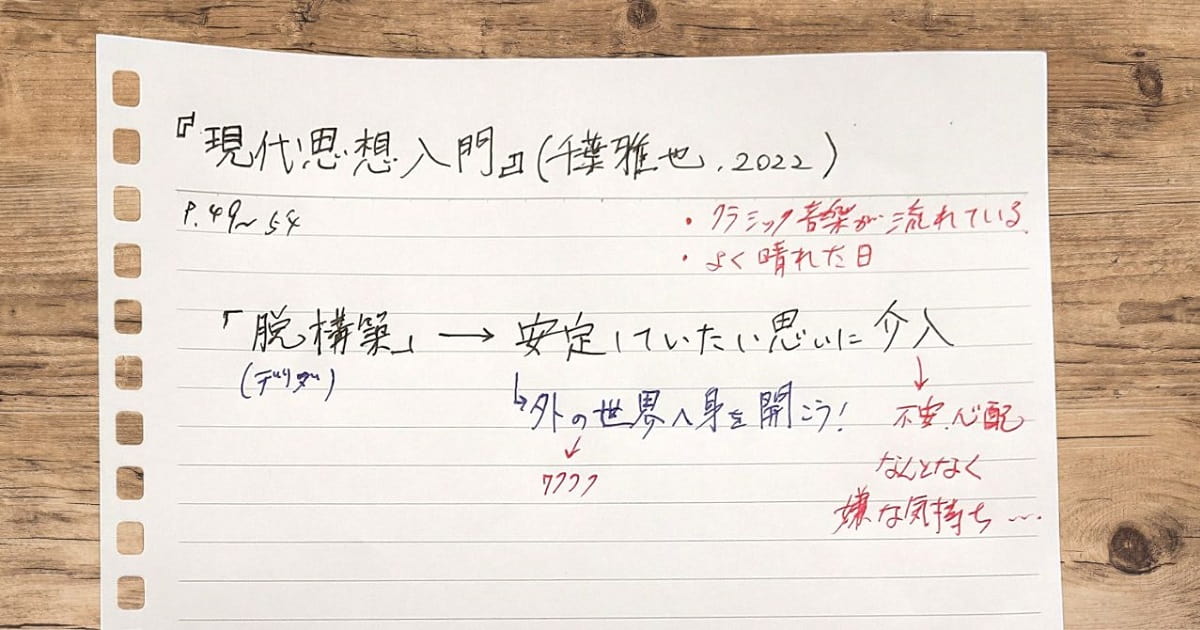 『現代思想入門』(千葉雅也, 2022)
P.49~54
・クラシック音楽が流れている。
・よく晴れた日
「脱構築」→安定していたい思いに介入
(デリダ)
↳外の世界へ身を開こう!
↓
ワクワク
↓
不安、心配
なんとなく
嫌な気持ち…